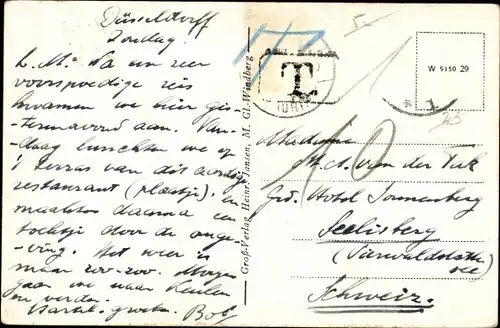 Düsseldorf
Zondag.
L. M. Na een zeer
voorspoedige reis
kwamen we hier gis-
terenavond aan. Van-
daag lunchten we op
't terras van dit aardige
restaurant (plaatje), en
maakten daarna een
tochtje door de omge-
ving. Het weer is
maar zoo-zoo. Morgen
gaan we naar Keulen
en verder.
Hartel. groeten. Bob
Groß-Verlag Heinr. Jansen, M. Gl.-Windberg
T
W 5150 29
10
Madame
v. der
Grd. Hotel Sonnenberg
Seelisberg
(Vierwaldstätter
see)
Schweiz.